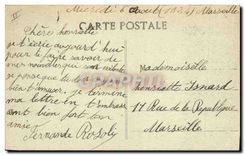 Mercredi 6 Août 1924 Marseille
CARTE POSTALE
Chère henriette
je t'écris aujourd'hui
pour te faire savoir de
mes nouvelles qui sont
je pense que
bien t'amuser. je termine
ma lettre en t'embrassant
bien fort ton
amie
Fernande
Mademoiselle
henriette Isnard
11 Rue de la République
Marseille